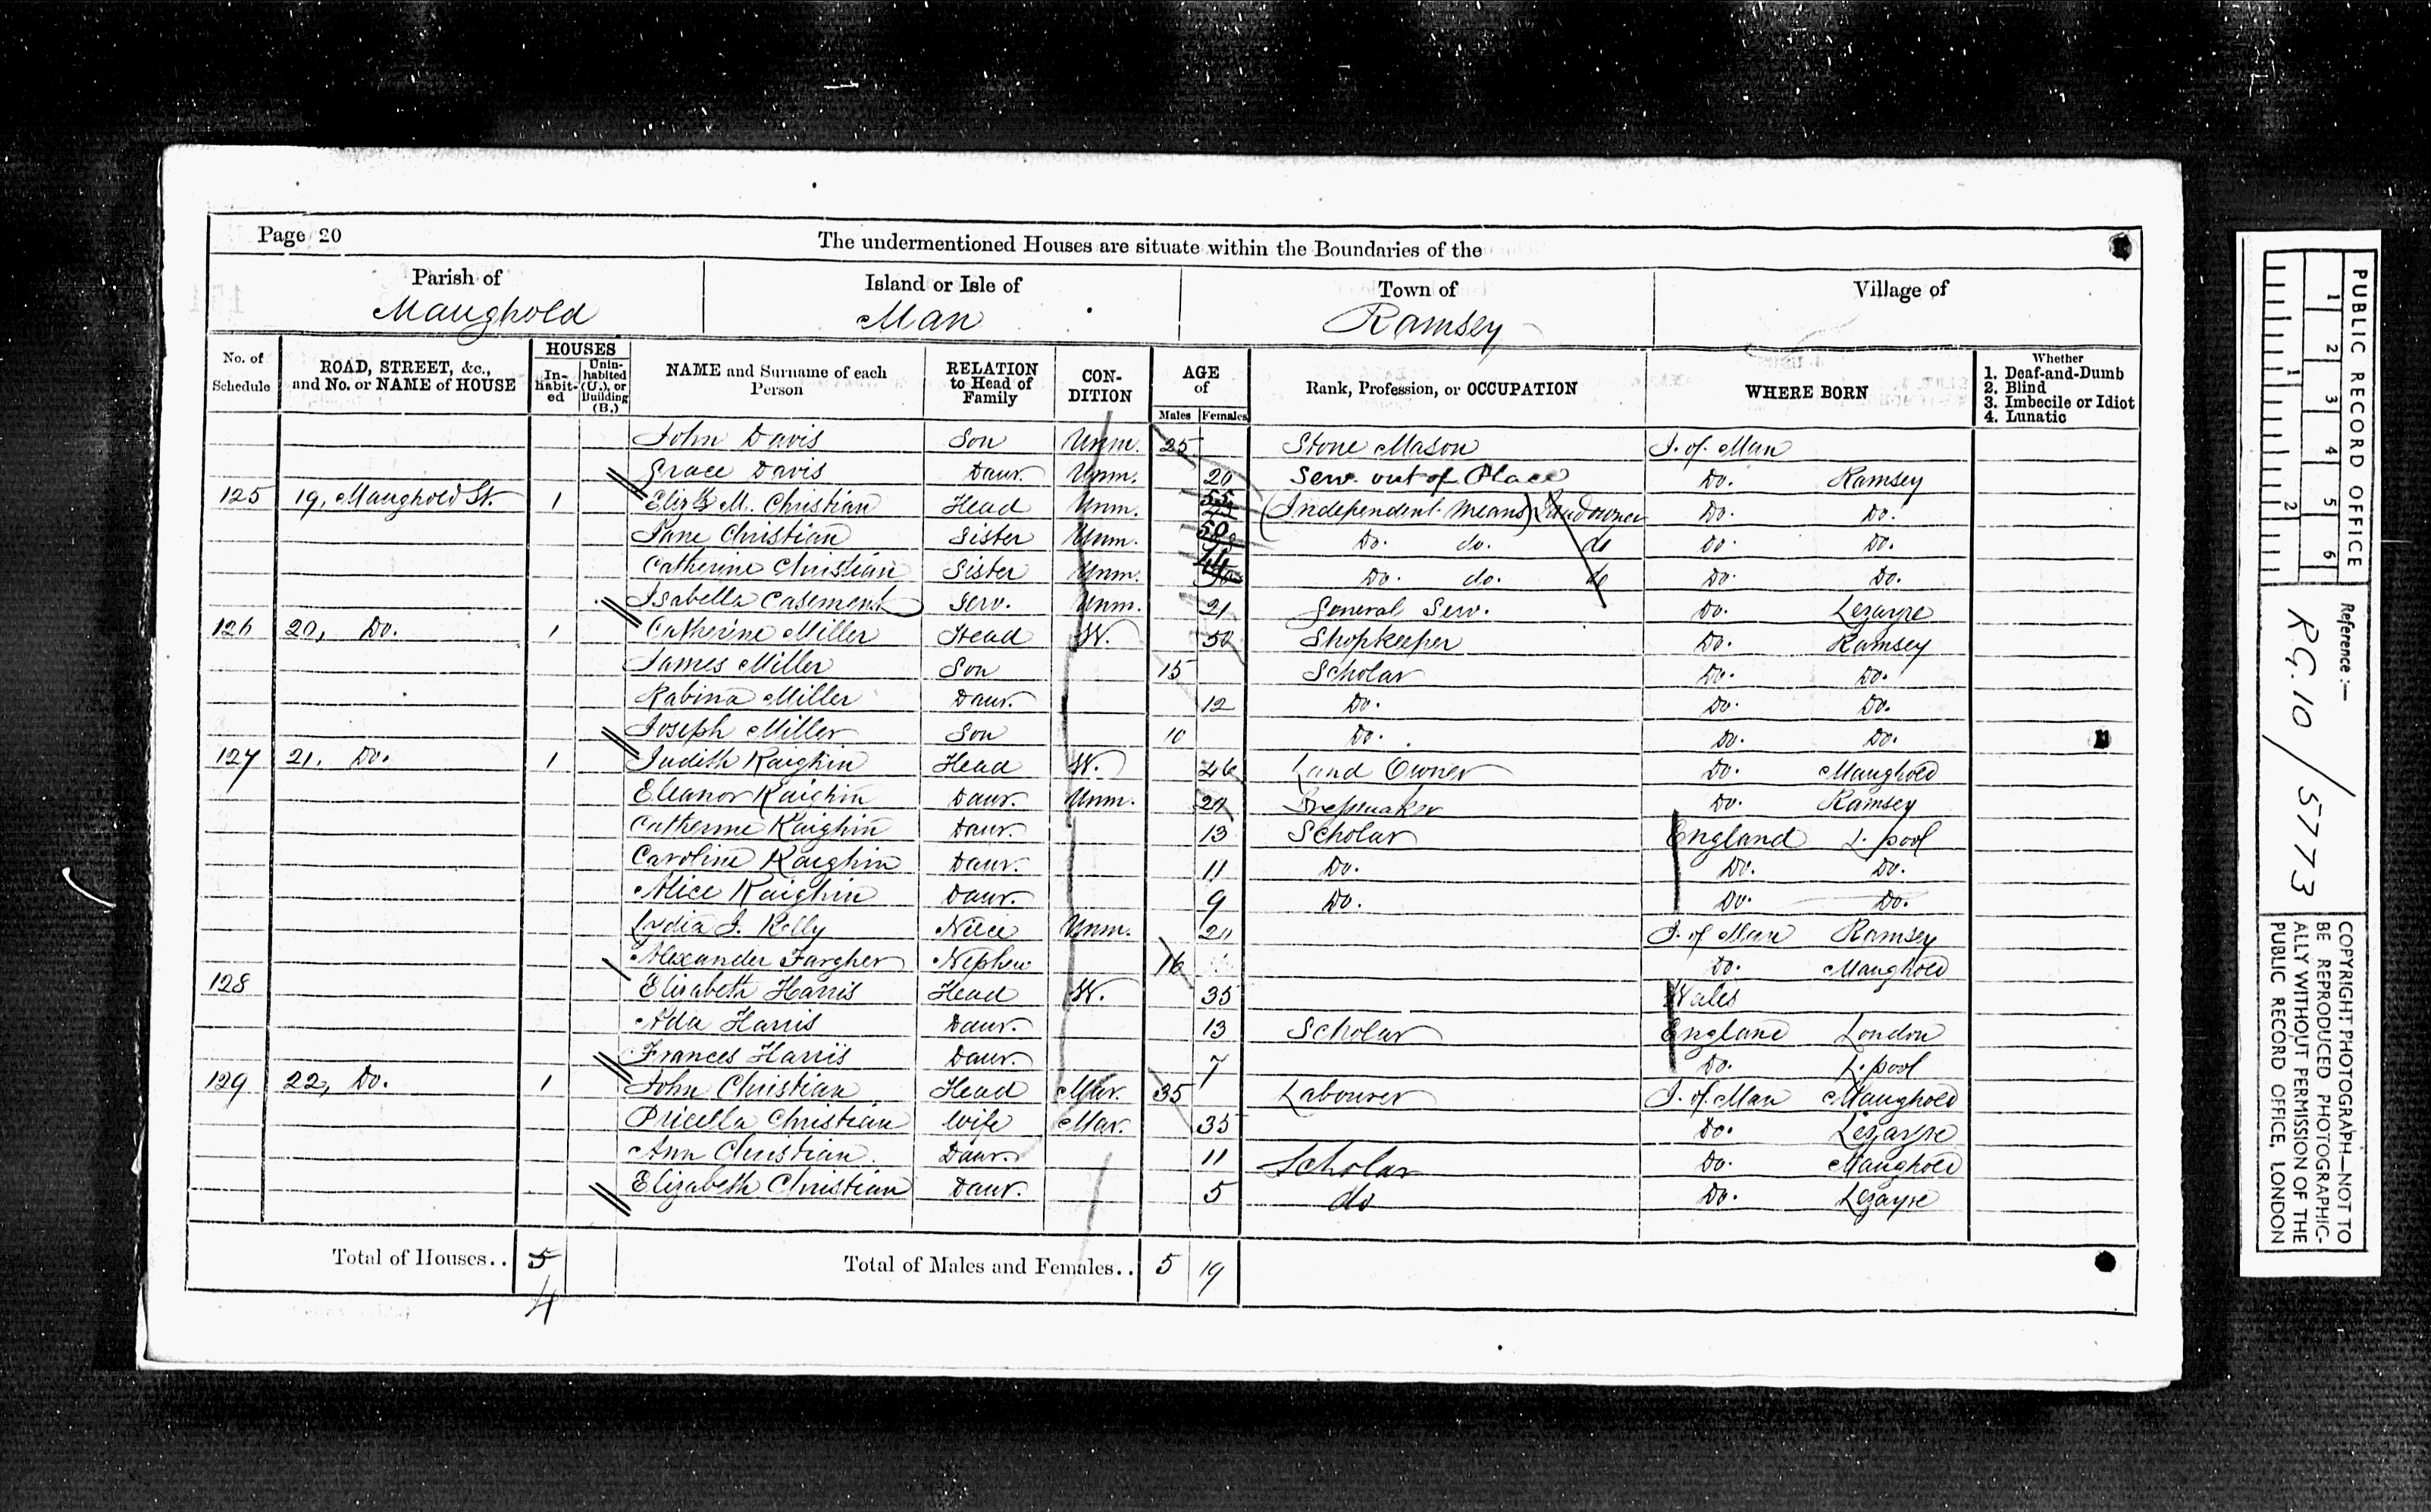 Page 20
The undermentioned Houses are situate within the Boundaries of the
Parish of Island or Isle of Town of Village of
Maughold Man Ramsey
No. of Schedule ROAD, STREET, &c., and No. or NAME of HOUSE HOUSES In-habit-ed Unin-habited (U.), or Building (B.) NAME and Surname of each Person RELATION to Head of Family CON-DITION AGE of Males Females Rank, Profession, or OCCUPATION WHERE BORN Whether 1. Deaf-and-Dumb 2. Blind 3. Imbecile or Idiot 4. Lunatic
John Davis Son Unm. 25 Stone Mason I. of Man
Grace Davis Daur. Unm. 20 Serv. out of Place Do. Ramsey
125 19, Maughold St. 1 Elizth M. Christian Head Unm. 55 (Independent Means) Landowner Do. Do.
Jane Christian Sister Unm. 50 Do. do. do Do. Do.
Catherine Christian Sister Unm. Do. do. do Do. Do.
Isabella Casement Serv. Unm. 21 General Serv. Do. Lezayre
126 20, Do. 1 Catherine Miller Head W. 50 Shopkeeper Do. Ramsey
James Miller Son 15 Scholar Do. Do.
Rabina Miller Daur. 12 Do. Do. Do.
Joseph Miller Son 10 Do. Do. Do.
127 21, Do. 1 Judith Kaighin Head W. 46 Land Owner Do. Maughold
Eleanor Kaighin Daur. Unm. Dressmaker Do. Ramsey
Catherine Kaighin Daur. 13 Scholar England L. pool
Caroline Kaighin Daur. 11 Do. Do. Do.
Alice Kaighin Daur. 9 Do. Do. Do.
Lydia J. Kelly Niece Unm. I. of Man Ramsey
Alexander Fargher Nephew 16 Do. Maughold
128 Elizabeth Harris Head W. 35 Wales
Ada Harris Daur. 13 Scholar England London
Frances Harris Daur. 7 Do. L. pool
129 22, Do. 1 John Christian Head Mar. 35 Labourer I. of Man Maughold
Pricella Christian Wife Mar. 35 Do. Lezayre
Ann Christian Daur. 11 Scholar Do. Maughold
Elizabeth Christian Daur. 5 do Do. Lezayre
Total of Houses.. 5 Total of Males and Females.. 5 19
4
PUBLIC RECORD OFFICE
1 2 3 4 5 6
1 2
Reference:—
RG. 10 / 5773
COPYRIGHT PHOTOGRAPH—NOT TO
BE REPRODUCED PHOTOGRAPHIC-
ALLY WITHOUT PERMISSION OF THE
PUBLIC RECORD OFFICE, LONDON